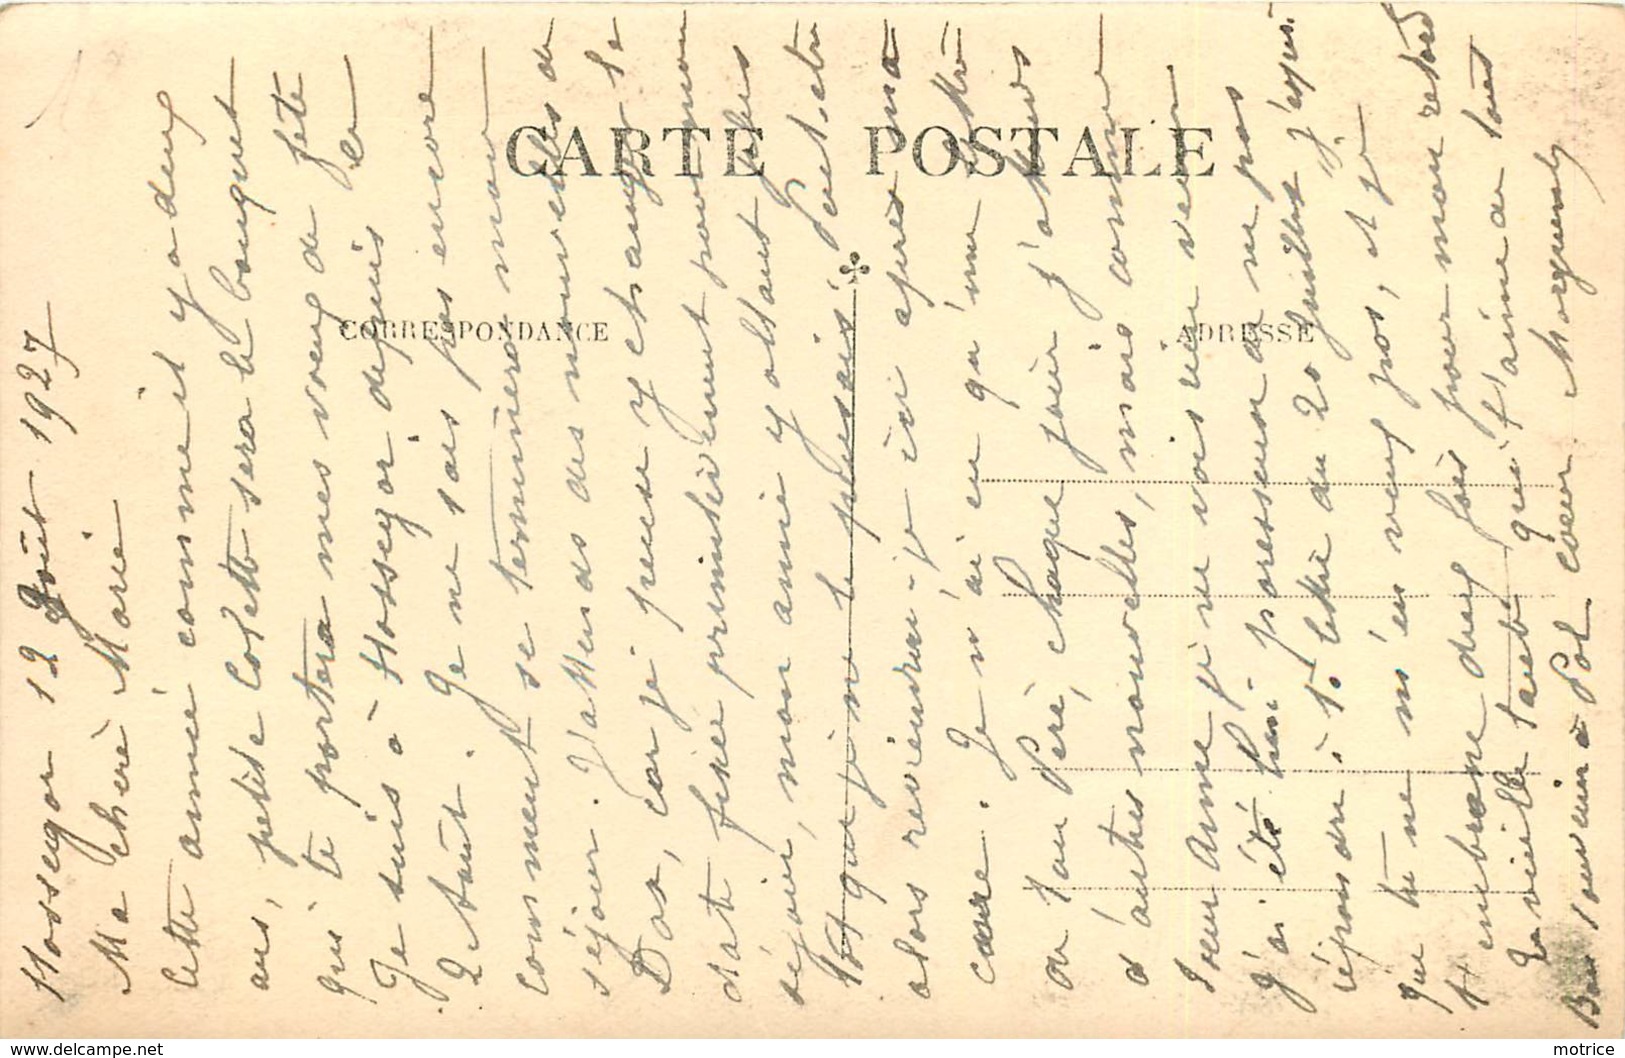 CARTE POSTALE
CORRESPONDANCE
ADRESSE
Hossegor 12 Août 1927
Ma chère Marie
Cette année comme il y a deux
ans, petite Colette sera le bouquet
qui te portera mes voeux de fête
Je suis à Hossegor depuis le
2 Août. Je ne sais pas encore
comment se terminera mon
séjour. J'attends des nouvelles de
Dax, car je pense y changer la
date fixée primitivement pour mon
séjour, mon amie y allant plus
tôt que je ne le pensais. Peut-être
alors reviendrai-je ici après ma
cure. Je n'ai eu qu'une lettre
de ton Père, chaque jour j'attends
d'autres nouvelles, mais comme
soeur Anne je ne vois rien venir
J'ai été bien paresseuse de ne pas
répondre à ta lettre du 20 Juillet j'espère
que tu ne m'en veux pas, et je
t'embrasse deux fois pour mon retard
Ta vieille tante qui t'aime de tout
coeur Marguerite
Bon souvenir à Pol
motrice
www.delcampe.net